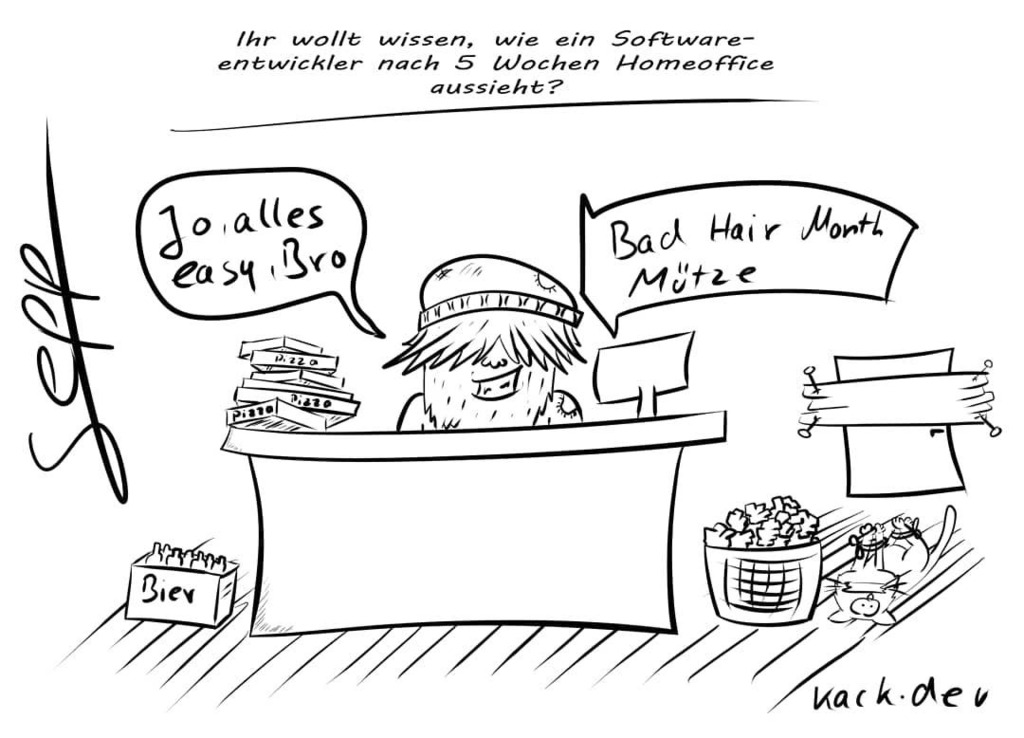 Ihr wollt wissen, wie ein Software-
entwickler nach 5 Wochen Homeoffice
aussieht?
Jo, alles
easy, Bro
Bad Hair Month
Mütze
Sepp
Pizza
Pizza
Pizza
Bier
kack.dev